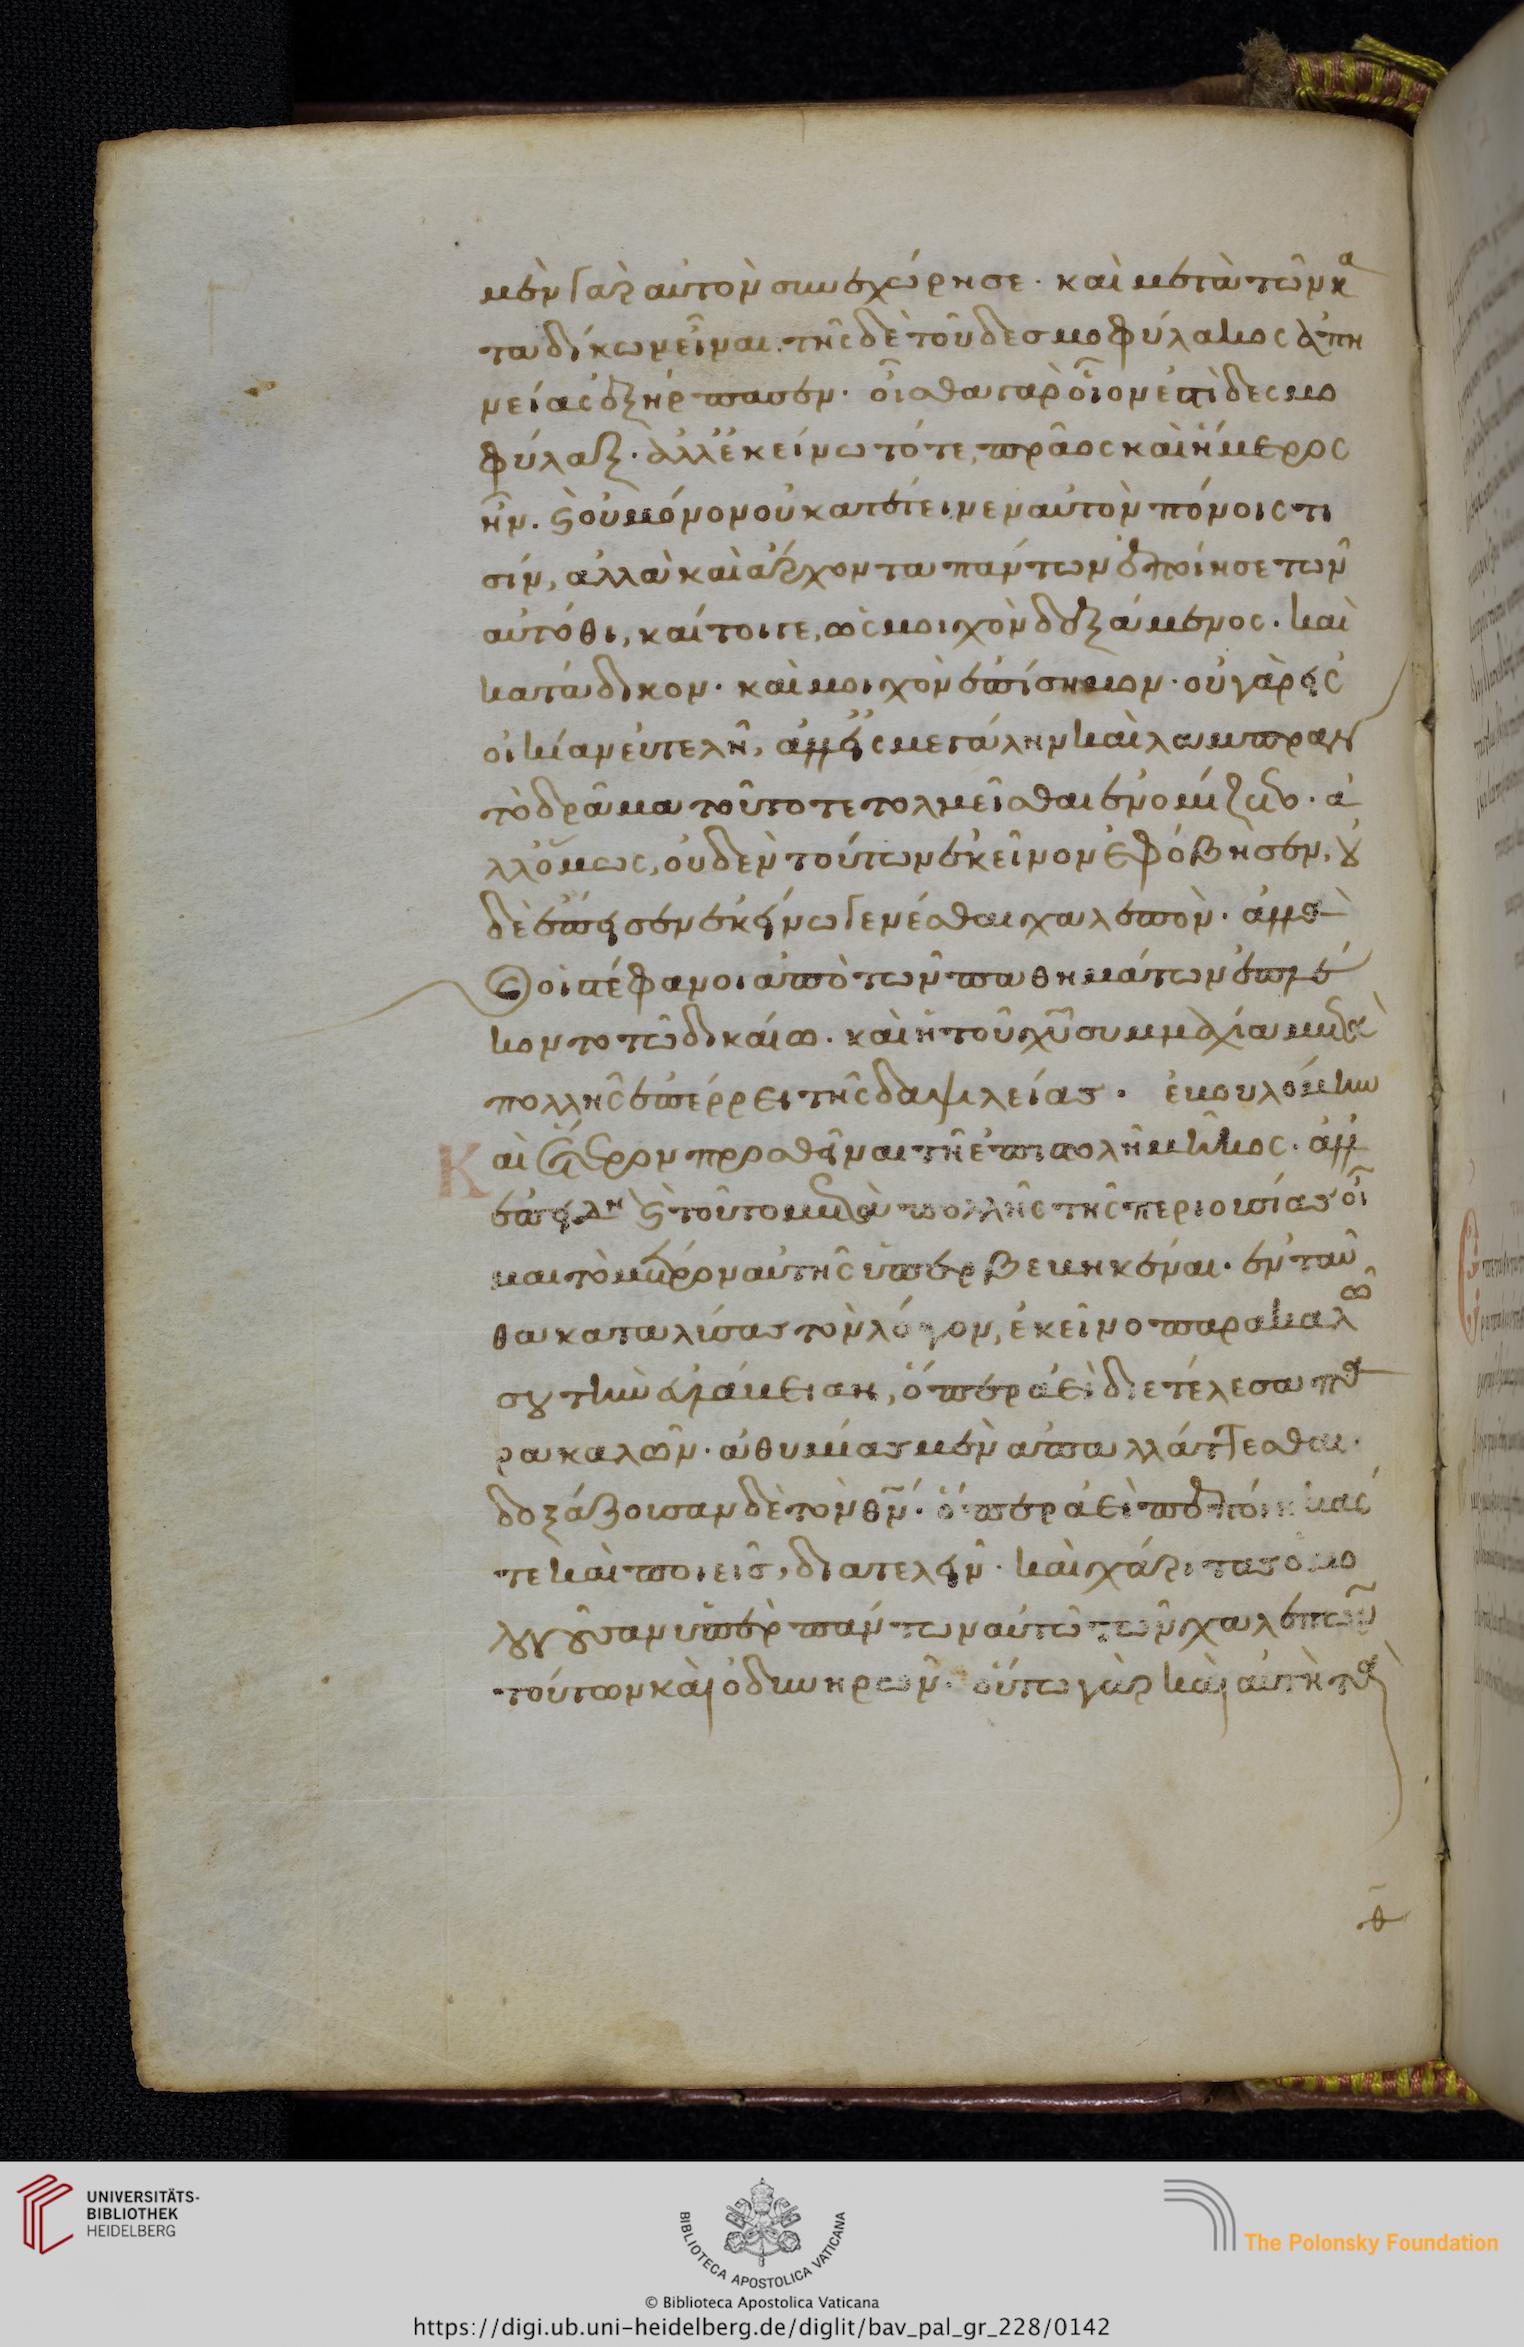 μὲν γὰρ αὐτὸν συνεχώρησε· καὶ μετὰ τῶν κα
ταδίκων εἶναι. τῆς δὲ τοῦ δεσμοφύλακος ἀπη
νείας ἐξήρπασεν· οἶσθα γὰρ οἷον ἐστὶ δεσμο
φύλαξ· ἀλλ' ἐκείνω τότε, πρᾶος καὶ ἥμερος
ἦν. καὶ οὐ μόνον οὐ κατέτεινεν αὐτὸν πόνοις τι
σίν, ἀλλὰ καὶ ἄρχοντα πάντων ἐποίησε τῶν
αὐτόθι, καίτοιγε, ὡς μοιχὸν δεξάμενος· καὶ
κατάδικον· καὶ μοιχὸν ἐπίσημον· οὐ γὰρ εἰς
οἰκίαν εὐτελῆ, ἀλλ' εἰς μεγάλην καὶ λαμπρὰν
τὸ δρᾶμα τοῦτο τετολμεῖσθαι ἐνομίζετο· ἀ
λλ' ὅμως, οὐδὲν τούτων ἐκεῖνον ἐφόβησεν, οὐ
δὲ ἔπεισεν ἐκείνω γενέσθαι χαλεπὸν· ἀλλὰ
οἱ στέφανοι ἀπὸ τῶν παθημάτων ἐπλέ
κοντο τῶ δικαίω· καὶ ἡ τοῦ χυ συμμαχία μετὰ
πολλῆς ἐπέρρει τῆς δαψιλείας· ἐβουλόμην
Καὶ ἕτερον προσθεῖναι τῆ ἐπιστολῆ μῆκος· ἀλλ'
ἐπειδὴ καὶ τοῦτο μετὰ πολλῆς τῆς περιουσίας οἶ
μαι τὸ μέτρον αὐτῆς ὑπερβεβηκέναι· ἐνταῦ
θα καταλύσας τὸν λόγον, ἐκεῖνο παρακαλῶ
σου τὴν εὐλάβειαν, ὅπερ ἀεὶ διετέλεσα πα
ρακαλῶν· ἀθυμίας μὲν ἀπαλλάττεσθαι·
δοξάζουσαν δὲ τὸν θν· ὅπερ ἀεὶ πεποίηκάς
τε καὶ ποιεῖς, διατελεῖν· καὶ χάριτας ὁμο
λογοῦσαν ὑπὲρ πάντων αὐτῶ τῶν χαλεπῶν
τούτων καὶ ὀδυνηρῶν· οὕτω γὰρ καὶ αὐτὴ τὰ
θ
UNIVERSITÄTS-
BIBLIOTHEK
HEIDELBERG
BIBLIOTECA APOSTOLICA VATICANA
The Polonsky Foundation
© Biblioteca Apostolica Vaticana
https://digi.ub.uni-heidelberg.de/diglit/bav_pal_gr_228/0142